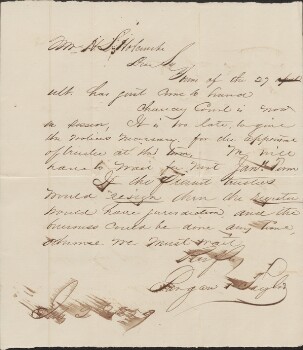 Dear Sir
Yours of the 27
ult has just come to hand
Chancery Court is now
in session, It is too late, to give
the notices necessary, for the
of trustee at this term. We will
have to wait for next Jany Term
If the present trustee
would resign then the
would have jurisdiction and the
business could be done any time,
otherwise we must wait
Resply